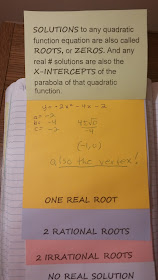 SOLUTIONS to any quadratic
function equation are also called
ROOTS, or ZEROS. And any
real # solutions are also the
X-INTERCEPTS of the
parabola of that quadratic
function.
y = -2x² - 4x - 2
a = -2
b = -4
c = -2
4±√0
-4
(-1,0)
also the vertex!
ONE REAL ROOT
2 RATIONAL ROOTS
2 IRRATIONAL ROOTS
NO REAL SOLUTION